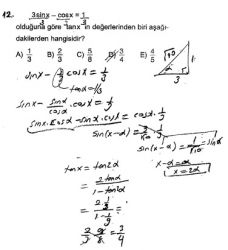 12.
3sinx - cosx = 1/3
olduğuna göre "tanx" in değerlerinden biri aşağı-
dakilerden hangisidir?
A) 1/3 B) 2/3 C) 5/8 D) 3/4 E) 4/5
√10
1
α
3
sinx - (1/3) cosx = 1/9
tanα = 1/3
sinx - sinα/cosα · cosx = 1/9
sinx · cosα - sinα · cosx = cosα · 1/9
sin(x-α) =
sin(x-α) = 1/√10 = sinα
x-α = α
x = 2α
tanx = tan2α
= 2tanα / 1-tan²α
= 2 · 1/3 / 1 - 1/9 =
= 3/4